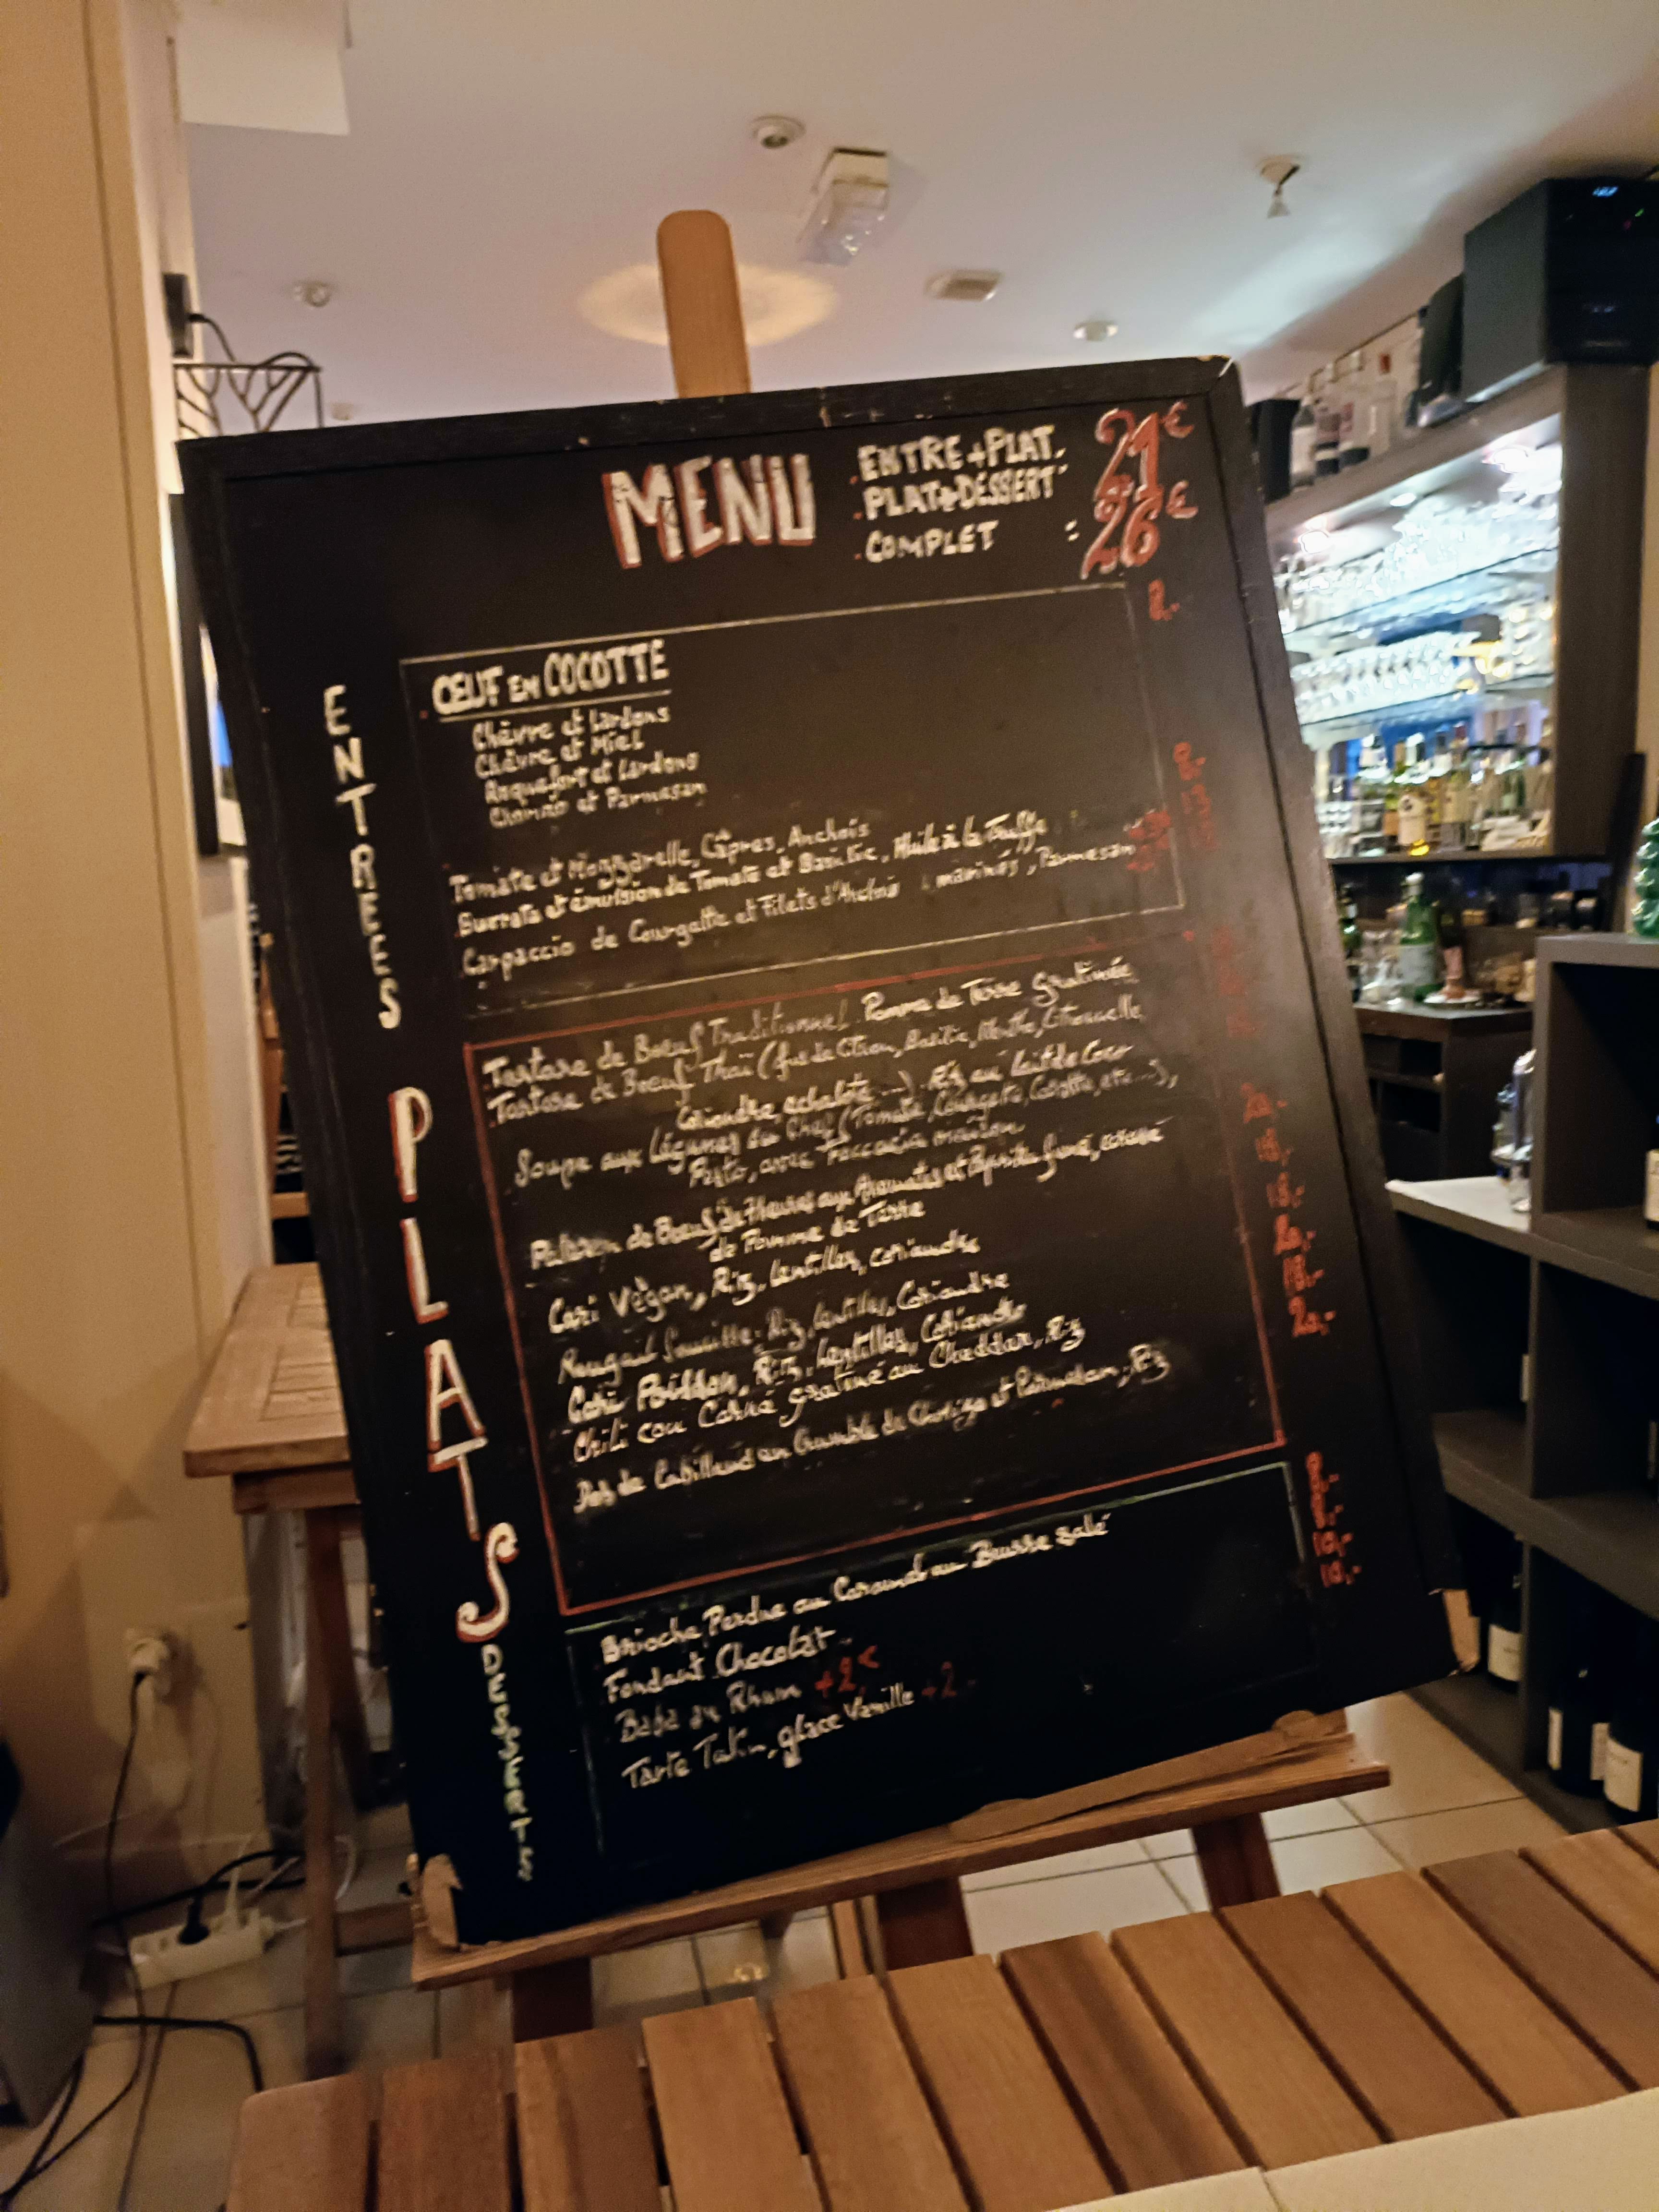 MENU
.ENTRE+PLAT.
.PLAT+DESSERT
.COMPLET :
21€
26€
ENTREES
ŒUF EN COCOTTE
Chèvre et Lardons
Chèvre et Miel
Roquefort et Lardons
et Parmesan
Tomate et Mozzarelle, Câpres, Anchois
Burrata et émulsion de Tomate et Basilic, Huile à la Truffe
Carpaccio de Courgette et Filets d'Anchois marinés, Parmesan
PLATS
Tartare de Bœuf Traditionnel. Pomme de Terre Gratinée
Tartare de Bœuf Thaï (Jus de Citron, Basilic, Menthe, Citronnelle,
Coriandre, echalote ...). Riz au lait de Coco
Soupe aux Légumes du Chef (Tomate, Courgette, Carotte, etc...),
Pesto, avec Foccacia maison
de Bœuf aux Aromates et Paprika fumé,
de Pomme de Terre
Cari Végan, Riz, lentilles, coriandre
Rougail Saucisse, Riz, lentilles, Coriandre
Cari Poisson, Riz, Lentilles, Coriandre
Chili con Carné gratiné au Cheddar, Riz
Dos de Cabillaud en Crumble de Chorizo et Parmesan, Riz
20.-
18.-
18.-
20.-
18.-
20.-
DESSERTS
Brioche Perdue au Caramel au Beurre salé
Fondant Chocolat
Baba au Rhum +2€
Tarte Tatin, glace Vanille +2.-
8.-
8.-
10.-
10.-